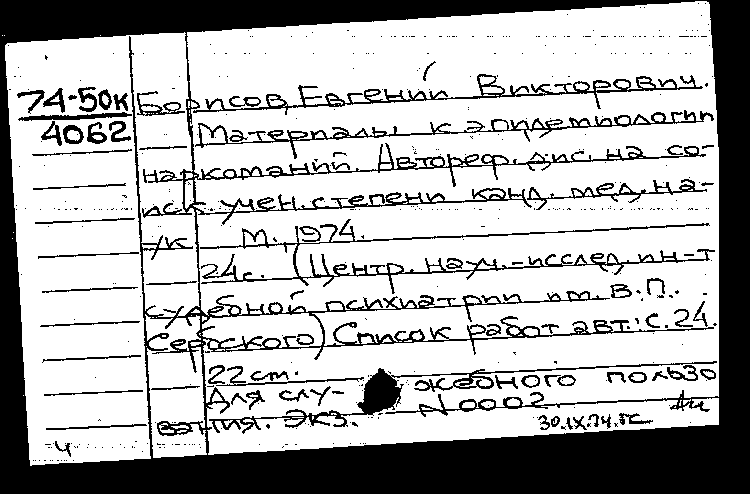 74-50к
4062
Борисов, Евгений Викторович.
Материалы к эпидемиологии
наркоманий. Автореф. дис. на со-
иск. учен. степени канд. мед. на-
ук М., 1974.
24с. (Центр. науч.-исслед. ин-т
судебной психиатрии им. В.П.
Сербского) Список работ авт.: с. 24.
22 см.
Для слу- жебного пользо
вания. Экз. N 0002.
30.IX.74.
ч